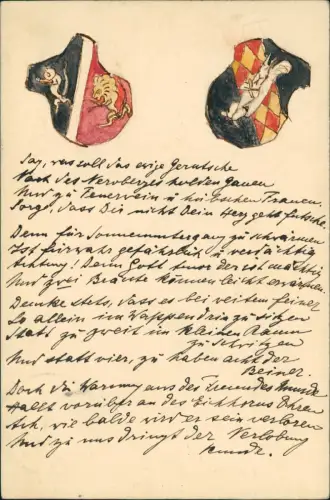 Sag, was soll das ewige Gerutsche
Nach des Neroberges holden Gauen
Und zu Feuerwein u hübschen Frauen.
Sorg, dass Dir nicht Dein Herz geht futsche.
Denn für Sonnenuntergang zu schwärmen
Ist fürwahr gefährlich u verdächtig
Achtung! Dein Gott ist mächtig
Und zwei Bräute können leicht
Denke stets, dass es bei weitem feiner
So allein im Wappendring zu sitzen
Statt zu zweit im kleinen Raum
zu schwitzen
Und statt vier, zu haben acht der
Beiner.
Doch die Warnung aus des Freundes Munde
Hallt vorüber an des Eichhorns Ohren
Ach, wie balde wird er sein verloren
Und zu uns dringt der Verlobung
Kunde.